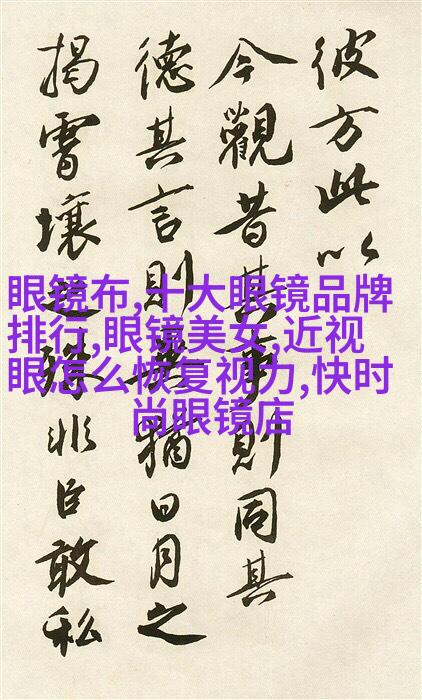 彼方此以
今觀昔其事則同其
德其言則猶日月之
揭霄壤殊非臣敢私
眼镜布,十大眼镜品牌
排行,眼镜美女,近视
眼怎么恢复视力,快时
尚眼镜店